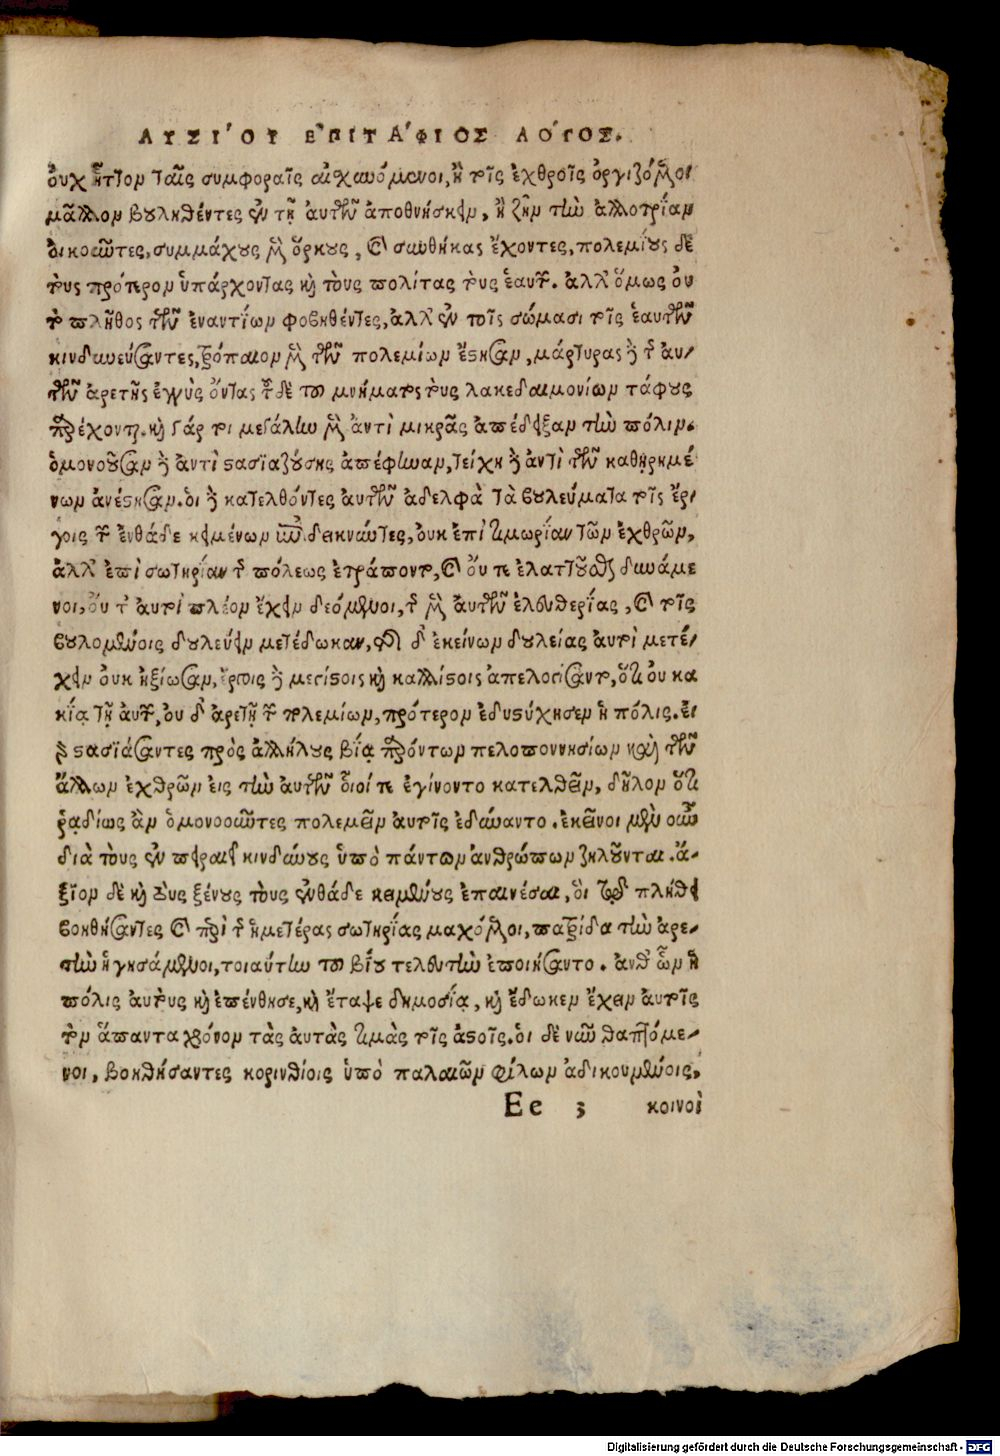 ΛΥΣΙ´ΟΥ ΕΠΙΤΑ´ΦΙΟΣ ΛΟ´ΓΟΣ.
οὐχ ἧττον ταῖς συμφοραῖς αἰσχυνόμενοι, ἢ τοῖς ἐχθροῖς ὀργιζόμενοι
μᾶλλον βουληθέντες ἐν τῇ αὑτῶν ἀποθνήσκειν, ἢ ζῆν τὴν ἀλλοτρίαν
οἰκοῦντες, συμμάχους μὲν ὅρκους, καὶ συνθήκας ἔχοντες, πολεμίους δὲ
τοὺς πρότερον ὑπάρχοντας καὶ τοὺς πολίτας τοὺς ἑαυτῶν. ἀλλ' ὅμως οὐ
τὸ πλῆθος τῶν ἐναντίων φοβηθέντες, ἀλλ' ἐν τοῖς σώμασι τοῖς ἑαυτῶν
κινδυνεύσαντες, τρόπαιον μὲν τῶν πολεμίων ἔστησαν, μάρτυρας δὲ τῆς αὑ-
τῶν ἀρετῆς ἐγγὺς ὄντας τοῦδε τοῦ μνήματος τοὺς λακεδαιμονίων τάφους
παρέχονται. καὶ γάρ τοι μεγάλην μὲν ἀντὶ μικρᾶς ἀπέδειξαν τὴν πόλιν.
ὁμονοοῦσαν δὲ ἀντὶ στασιαζούσης ἀπέφηναν, τείχη δὲ ἀντὶ τῶν καθῃρημέ
νων ἀνέστησαν. οἱ δὲ κατελθόντες αὐτῶν ἀδελφὰ τὰ βουλεύματα τοῖς ἔρ-
γοις τῶν ἐνθάδε κειμένων ἐπιδεικνύντες, οὐκ ἐπὶ τιμωρίαν τῶν ἐχθρῶν,
ἀλλ' ἐπὶ σωτηρίαν τῆς πόλεως ἐτράποντο, καὶ οὔτε ἐλαττοῦσθαι δυνάμε
νοι, οὔτ' αὐτοὶ πλέον ἔχειν δεόμενοι, τῆς μὲν αὑτῶν ἐλευθερίας, καὶ τοῖς
βουλομένοις δουλεύειν μετέδωκαν, τῆς δ' ἐκείνων δουλείας αὐτοὶ μετέ-
χειν οὐκ ἠξίωσαν, ἔργοις δὲ μεγίστοις καὶ καλλίστοις ἀπελογήσαντο, ὅτι οὐ κα
κίᾳ τῇ αὑτῶν, οὐδ' ἀρετῇ τῶν πολεμίων, πρότερον ἐδυστύχησεν ἡ πόλις. εἰ
γὰρ στασιάσαντες πρὸς ἀλλήλους βίᾳ παρόντων πελοποννησίων καὶ τῶν
ἄλλων ἐχθρῶν εἰς τὴν αὑτῶν οἷοί τε ἐγίνοντο κατελθεῖν, δῆλον ὅτι
ῥᾳδίως ἂν ὁμονοοῦντες πολεμεῖν αὐτοῖς ἐδύναντο. ἐκεῖνοι μὲν οὖν
διὰ τοὺς ἐν πειραιεῖ κινδύνους ὑπὸ πάντων ἀνθρώπων ζηλοῦνται. ἄ-
ξιον δὲ καὶ τοὺς ξένους τοὺς ἐνθάδε κειμένους ἐπαινέσαι, οἳ τῷ πλήθει
βοηθήσαντες καὶ περὶ τῆς ἡμετέρας σωτηρίας μαχόμενοι, πατρίδα τὴν ἀρε-
τὴν ἡγησάμενοι, τοιαύτην τοῦ βίου τελευτὴν ἐποιήσαντο. ἀνθ' ὧν ἡ
πόλις αὐτοὺς καὶ ἐπένθησε, καὶ ἔταψε δημοσίᾳ, καὶ ἔδωκεν ἔχειν αὐτοῖς
τὸν ἅπαντα χρόνον τὰς αὐτὰς τιμὰς τοῖς ἀστοῖς. οἱ δὲ νῦν θαπτόμε-
νοι, βοηθήσαντες κορινθίοις ὑπὸ παλαιῶν φίλων ἀδικουμένοις,
Ee 3 κοινοὶ
Digitalisierung gefördert durch die Deutsche Forschungsgemeinschaft - DFG